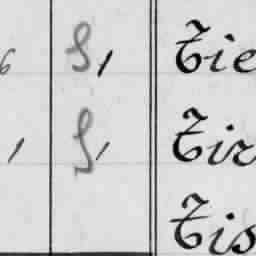 6 S, Tie
, S, Tir
Tis